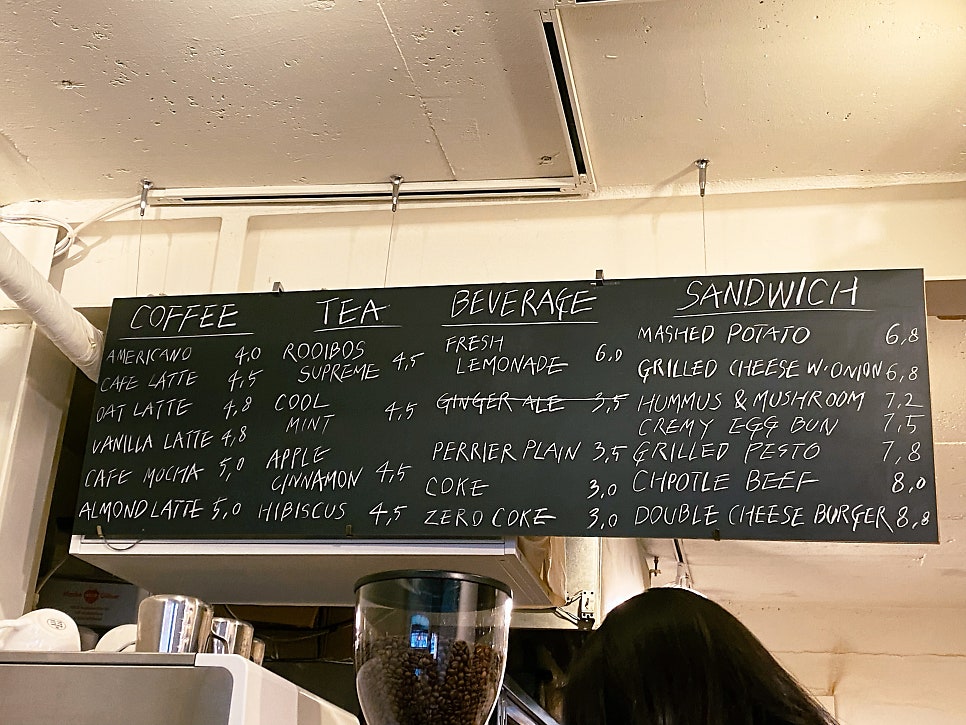 COFFEE
AMERICANO 4,0
CAFE LATTE 4,5
OAT LATTE 4,8
VANILLA LATTE 4,8
CAFE MOCHA 5,0
ALMOND LATTE 5,0
TEA
ROOIBOS
SUPREME 4,5
COOL
MINT 4,5
APPLE
CINNAMON 4,5
HIBISCUS 4,5
BEVERAGE
FRESH
LEMONADE 6,0
GINGER ALE 3,5
PERRIER PLAIN 3,5
COKE 3,0
ZERO COKE 3,0
SANDWICH
MASHED POTATO 6,8
GRILLED CHEESE W·ONION 6,8
HUMMUS & MUSHROOM 7,2
CREMY EGG BUN 7,5
GRILLED PESTO 7,8
CHPOTLE BEEF 8,0
DOUBLE CHEESE BURGER 8,8